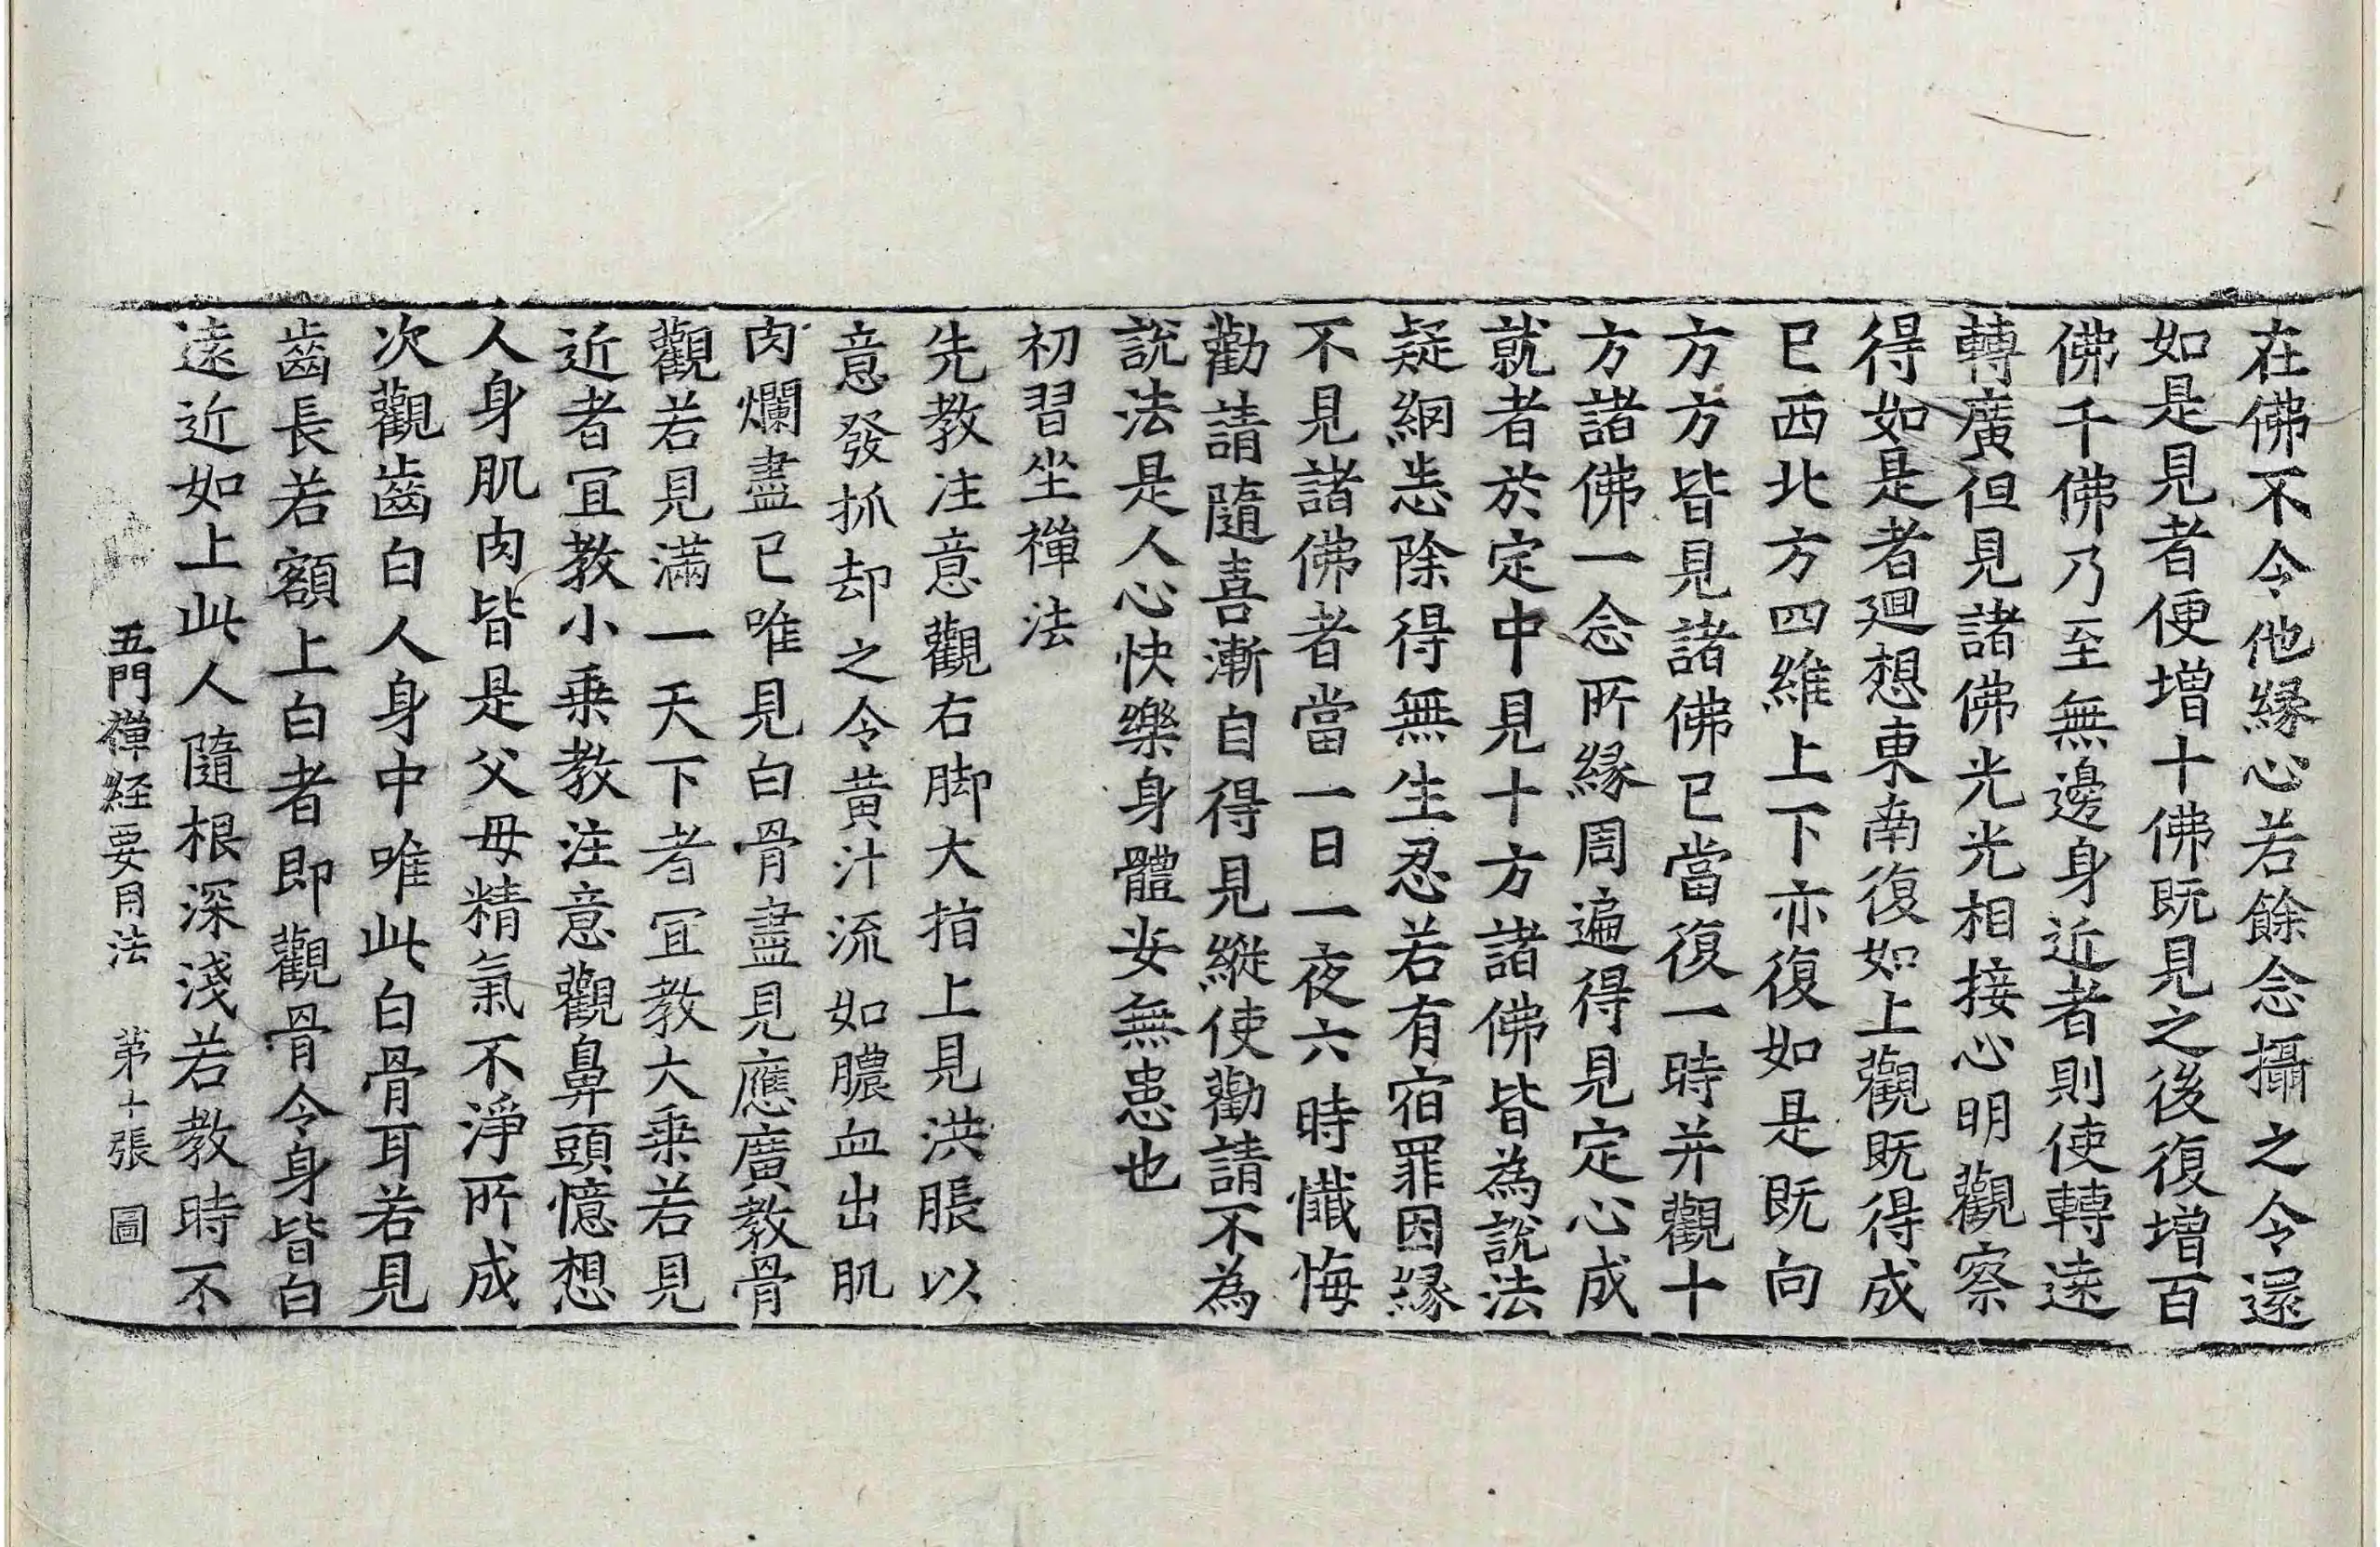 在佛不令他縁心若餘念攝之令還
如是見者便增十佛既見之後復增百
佛千佛乃至無邊身近者則使轉遠
轉廣但見諸佛光光相接心明觀察
得如是者廻想東南復如上觀既得成
已西北方四維上下亦復如是既向
方方皆見諸佛已當復一時并觀十
方諸佛一念所縁周遍得見定心成
就者於定中見十方諸佛皆為說法
疑網恙除得無生忍若有宿罪因縁
不見諸佛者當一日一夜六時懺悔
勸請隨喜漸自得見縱使勸請不為
說法是人心快樂身體安無患也
初習坐禪法
先教注意觀右脚大指上見洪脹以
意發抓却之令黃汁流如膿血出肌
肉爛盡已唯見白骨盡見應廣教骨
觀若見滿一天下者宜教大乗若見
近者宜教小乗教注意觀鼻頭憶想
人身肌肉皆是父母精氣不淨所成
次觀齒白人身中唯此白骨耳若見
齒長若額上白者即觀骨令身皆白
遠近如上此人隨根深淺若教時不
五門禪経要用法 第十張 圖